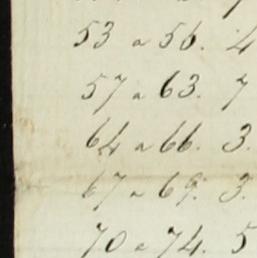 53 a 56. 4
57 a 63. 7
64 a 66. 3.
67 a 69. 3.
70 a 74. 5